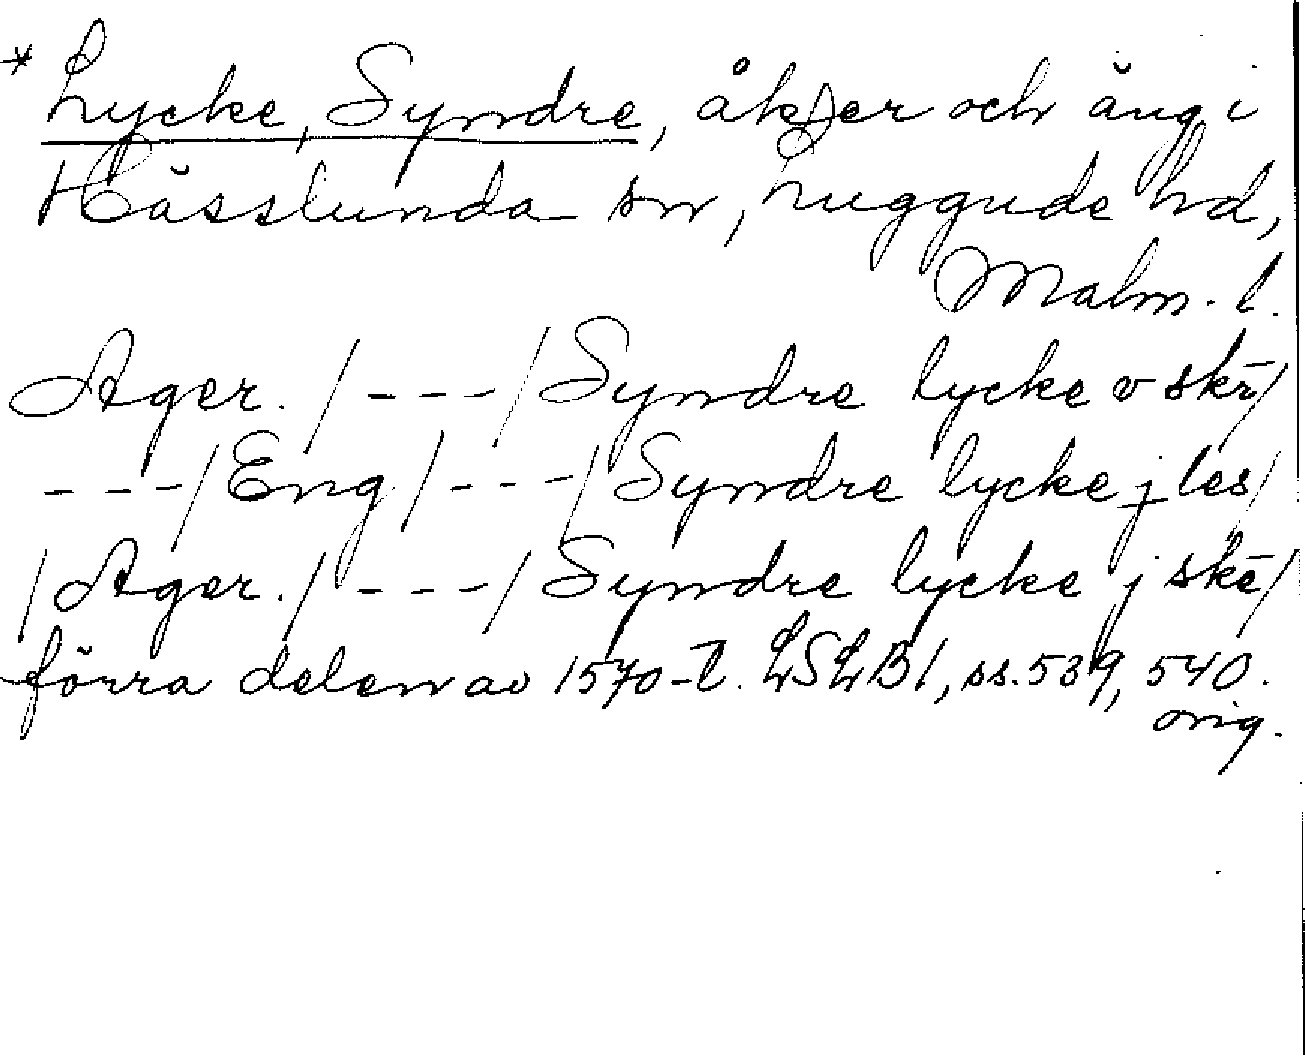 * Lycke, Syndre, åk)er och äng i
Hässlunda sn, Luggude hd,
Malm. l.
Ager. /---/ Syndre lycke v skr̄/
---/ Eng /---/ Syndre lycke j les/
/ Ager. /---/ Syndre lycke j skē/
förra delen av 1570-t. LSLB1, ss. 539, 540.
orig.